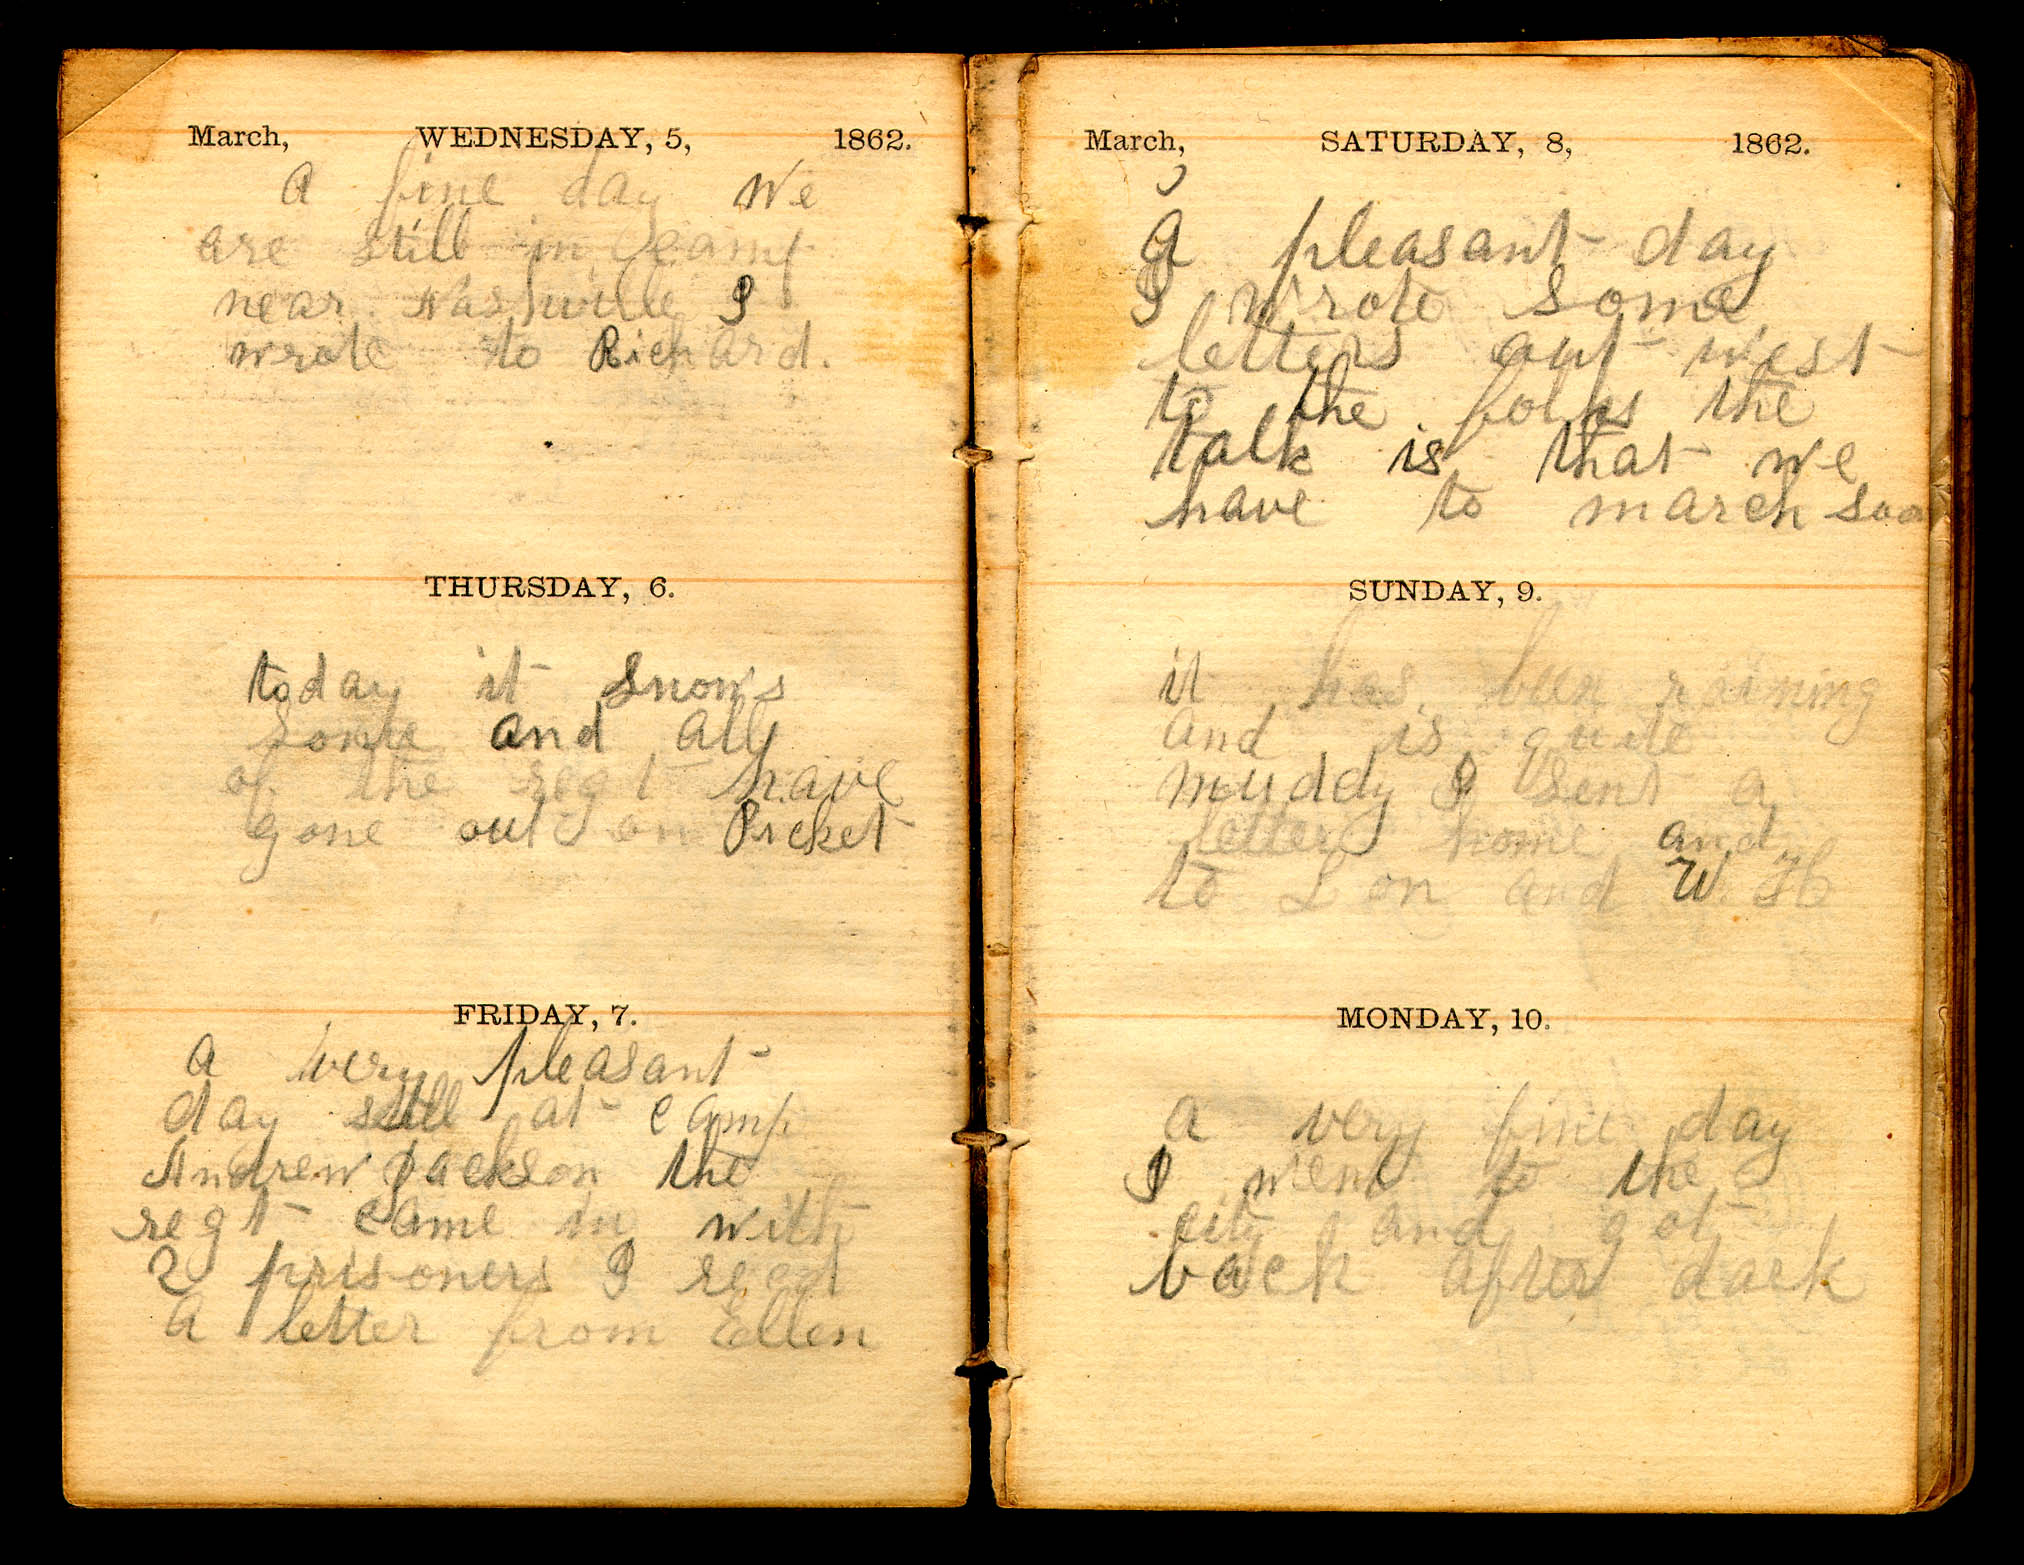 March, WEDNESDAY, 5, 1862.
A fine day We
are still in Camp
near Nashville I
wrote to Richard.
THURSDAY, 6.
today it Snows
Some and all
of the regt have
gone out on Picket
FRIDAY, 7.
A very pleasant
day still at camp
Andrew Jackson the
regt came in with
2 prisoners I recd
A letter from Ellen
March, SATURDAY, 8, 1862.
A pleasant day
I wrote Some
letters out west
to the folks the
talk is that we
have to march soon
SUNDAY, 9.
it has been raining
and is quite
muddy I Sent a
letter home and
to Lon and W. H
MONDAY, 10.
A very fine day
I went to the
city and got
back after dark